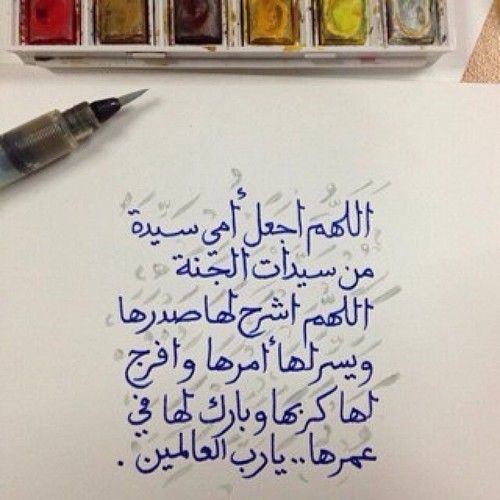 اللهم اجعل أمي سيدة
من سيدات الجنة
اللهم اشرح لها صدرها
ويسر لها أمرها وافرج
لها كربها وبارك لها في
عمرها.. يارب العالمين .